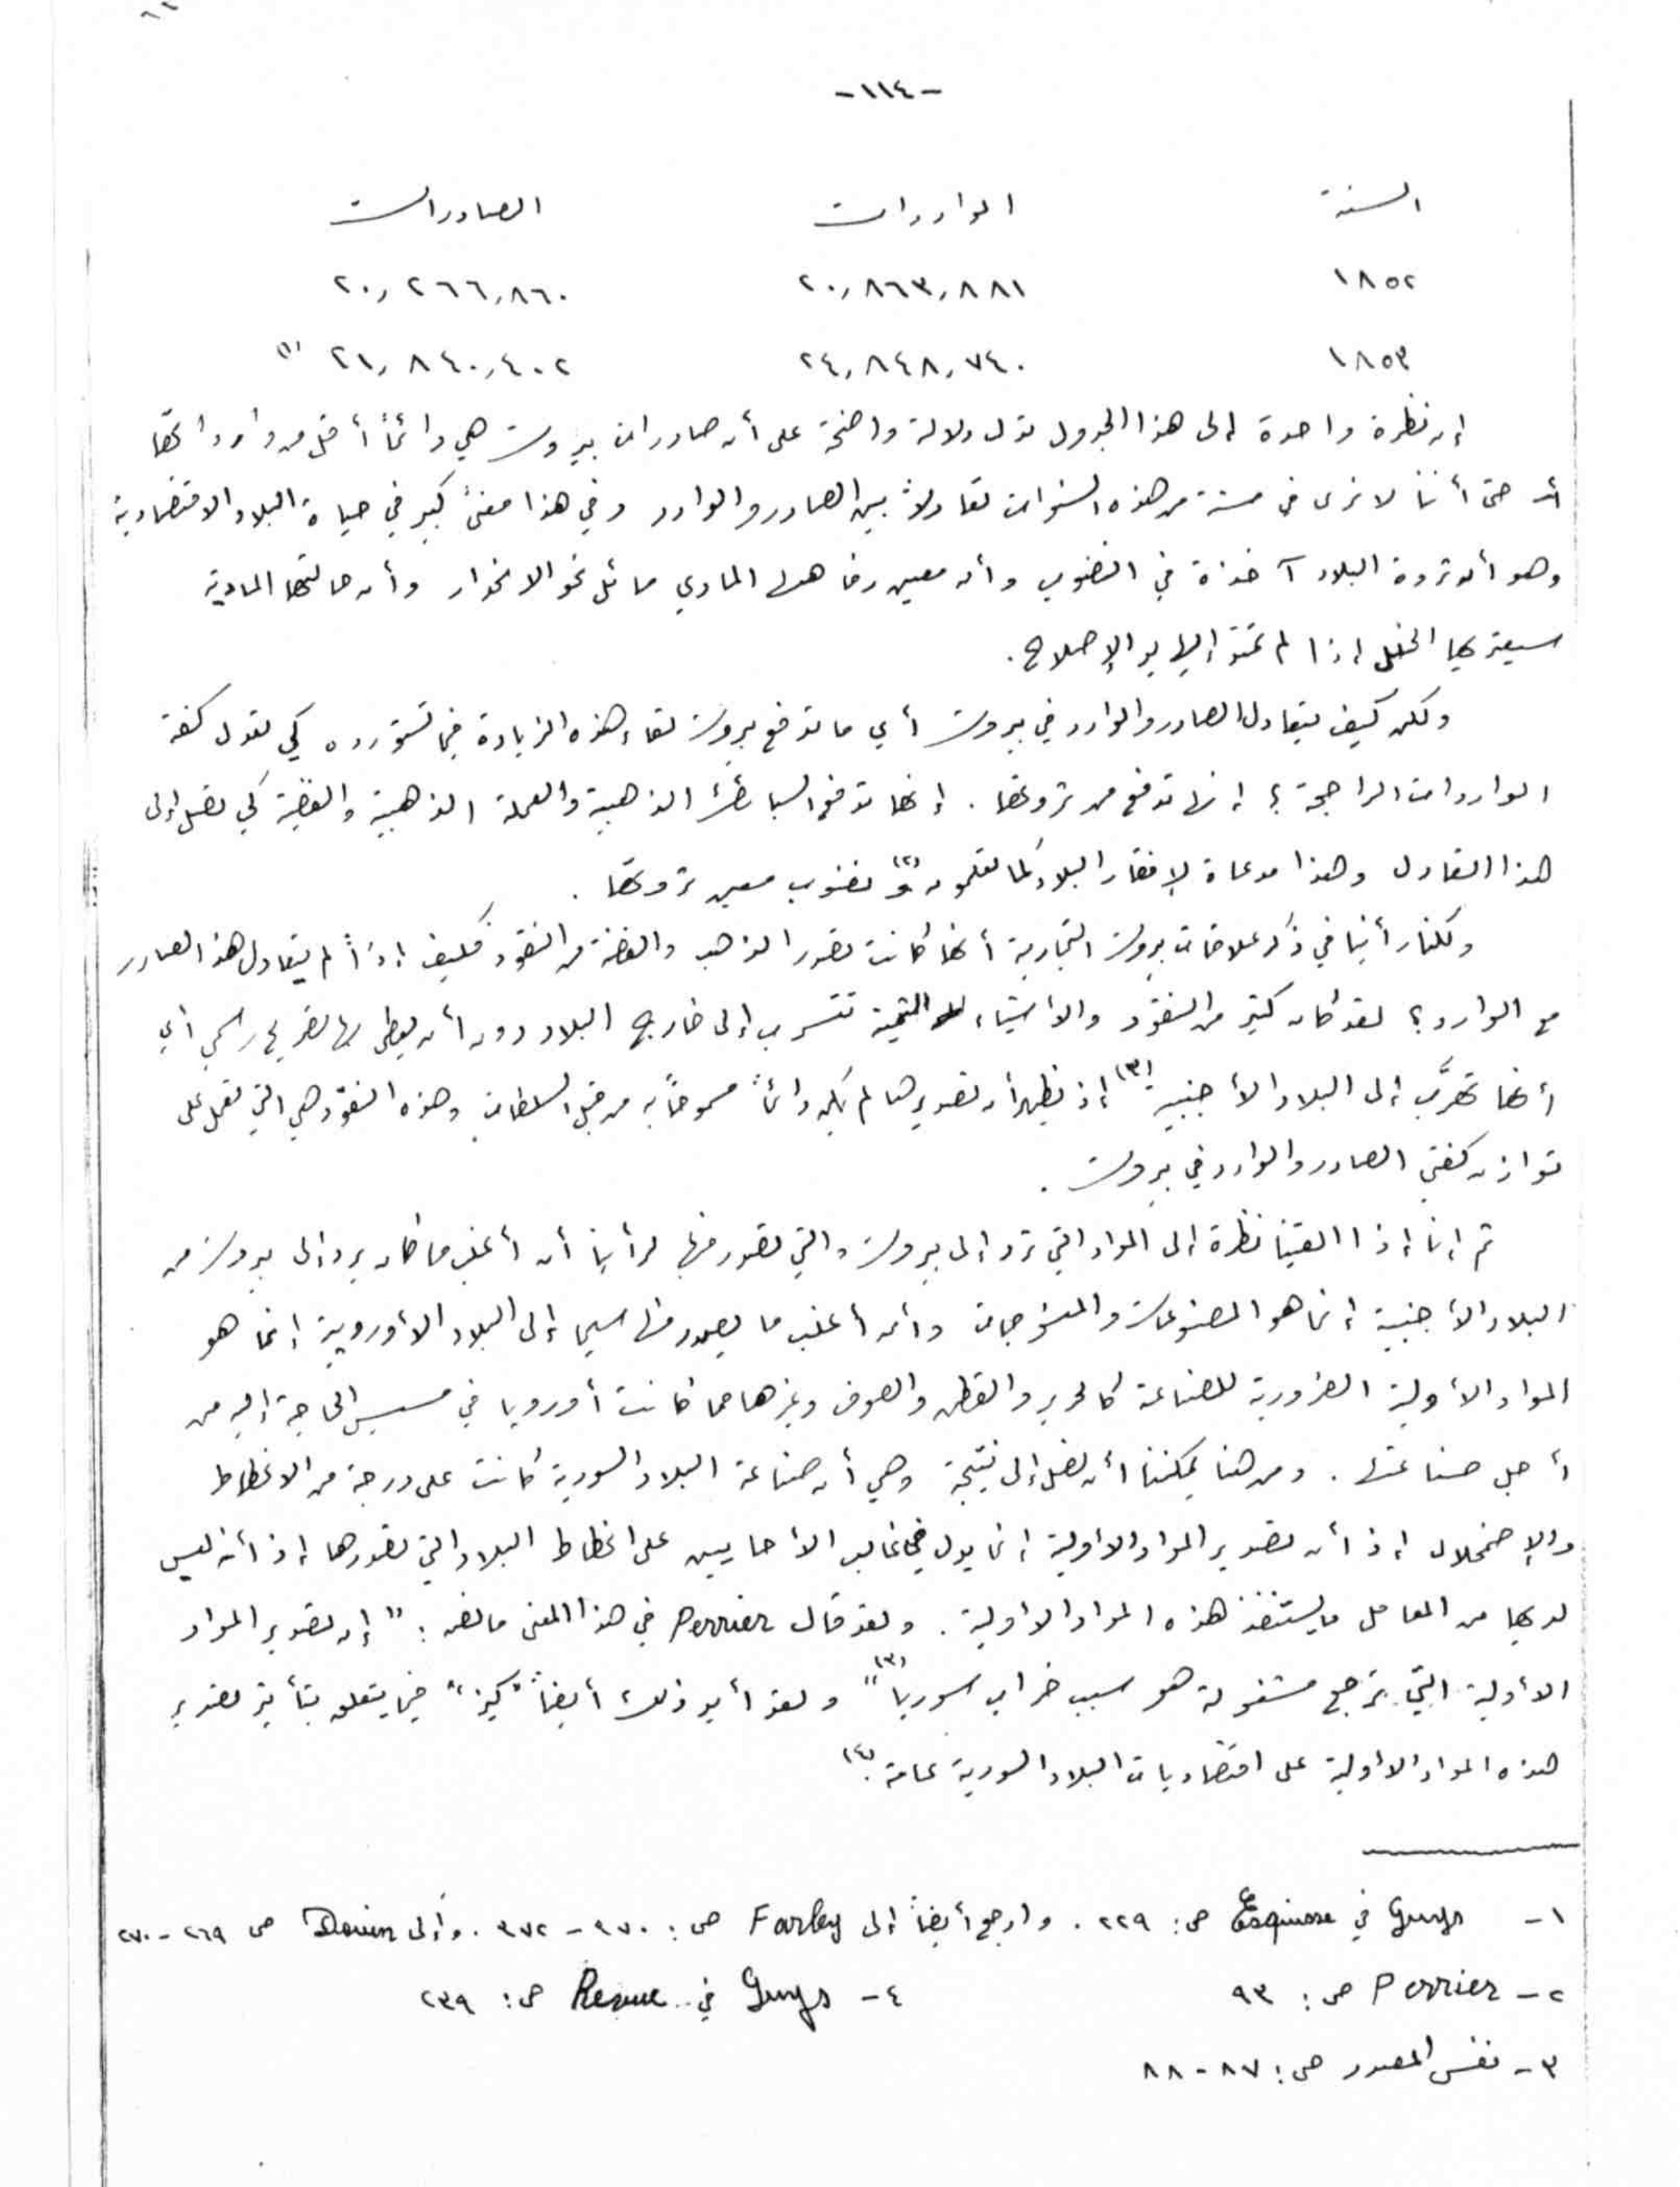 -١١٤-
السنة الواردات الصادرات
١٨٥٢ ٢٠,٨٦٣,٨٨١ ٢٠,٢٦٦,٨٦٠
١٨٥٣ ٢٤,٨٤٨,٧٤٠ ٢١,٨٤٠,٤٠٢ (١)
إن نظرة واحدة إلى هذا الجدول تدل دلالة واضحة على أن صادرات بيروت هي دائماً أقل من وارداتها
حتى أننا لا نرى في سنة من هذه السنوات تعادلاً بين الصادر والوارد وفي هذا معنىً كبير في حياة البلاد الاقتصادية
وهو أن ثروة البلاد آخذة في النضوب وأن معين رفاهها المادي مائل نحو الانحدار وأن حالتها المادية
سيعتريها الخلل إذا لم تمتد إليها يد الإصلاح.
ولكن كيف يتعادل الصادر والوارد في بيروت أي ما تدفع بيروت لقاء هذه الزيادة فيما تستورده كي تعدل كفة
الواردات الراجحة؟ إنها تدفع من ثروتها. إنها تدفع السبائك الذهبية والعملة الذهبية والفضية كي تصل إلى
هذا التعادل وهذا مدعاة لإفقار البلاد كما تعلمون (٢) ونضوب معين ثروتها.
ولكننا رأينا في ذكر علاقات بيروت التجارية أنها كانت تصدر الذهب والفضة من النقود فكيف إذاً لم يتعادل هذا الصادر
مع الوارد؟ لقد كان كثير من النقود والأشياء الثمينة تتسرب إلى خارج البلاد دون أن يعطى بها تصريح رسمي أي
أنها تهرَّب إلى البلاد الأجنبية (٣) إذ يظهر أن تصديرها لم يكن دائماً مسموحاً به من قبل السلطات وهذه النقود هي التي تعمل على
توازن كفتي الصادر والوارد في بيروت.
ثم إننا إذا القينا نظرة إلى المواد التي ترد إلى بيروت والتي تصدر منها لرأينا أن أغلب ما كان يرد إلى بيروت من
البلاد الأجنبية إنما هو المصنوعات والمنسوجات وأن أغلب ما يصدر منها سيما إلى البلاد الأوروبية إنما هو
المواد الأولية الضرورية للصناعة كالحرير والقطن والصوف وغيرها مما كانت أوروبا في مسيس الحاجة إليه من
أجل صناعتها. ومن هنا يمكننا أن نصل إلى نتيجة وهي أن صناعة البلاد السورية كانت على درجة من الانحطاط
والإضمحلال إذ أن تصدير المواد الاولية إنما يدل في غالب الأحايين على انحطاط البلاد التي تصدرها إذ أنه ليس
لديها من المعامل ما يستنفذ هذه المواد الاولية. ولقد قال Perrier في هذا المعنى ما نصه: "إن تصدير المواد
الأولية التي ترجع مشغولة هو سبب خراب سوريا" (٣) ولقد أيد ذلك أيضاً "كيز" فيما يتعلق بتأثير تصدير
هذه المواد الاولية على اقتصاديات البلاد السورية عامة. (٤)
١- Guys في Esquisse ص: ٢٢٩. وارجع أيضاً إلى Farley ص: ٣٧٠-٣٧٢. وإلى ص ٢٦٩-٢٧٠
٢- Perrier ص: ٩٣ ٤- Guys في Revue ص: ٢٣٩
٣- نفس المصدر ص: ٨٧-٨٨